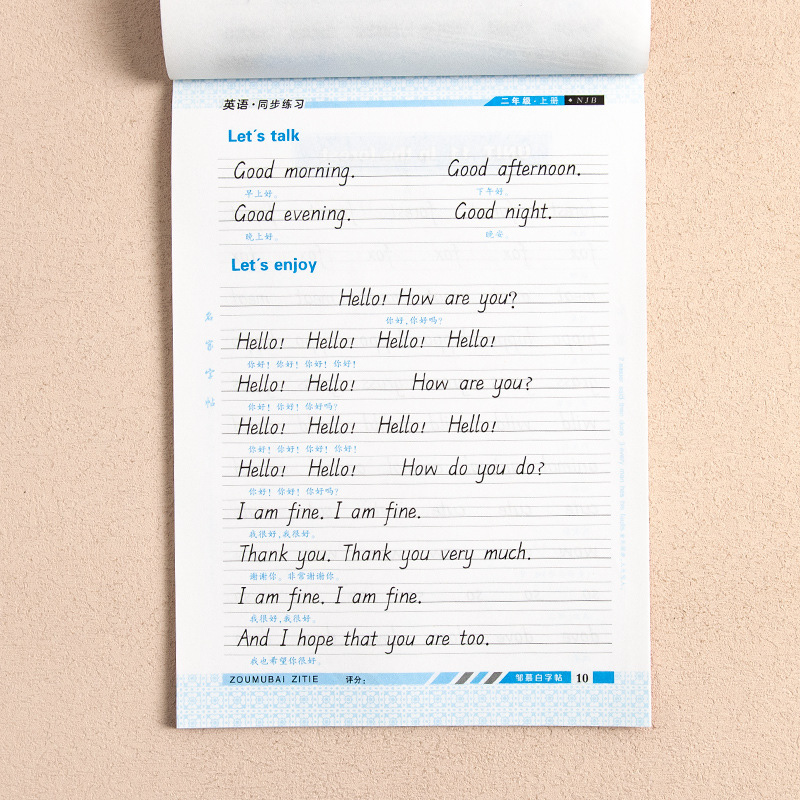 英语·同步练习 二年级·上册 ◆NJB
Let's talk
Good morning. Good afternoon.
早上好。 下午好。
Good evening. Good night.
晚上好。 晚安。
Let's enjoy
Hello! How are you?
你好,你好吗?
Hello! Hello! Hello! Hello!
你好! 你好! 你好! 你好!
Hello! Hello! How are you?
你好! 你好! 你好吗?
Hello! Hello! Hello! Hello!
你好! 你好! 你好! 你好!
Hello! Hello! How do you do?
你好! 你好! 你好吗?
I am fine. I am fine.
我很好,我很好。
Thank you. Thank you very much.
谢谢你。非常谢谢你。
I am fine. I am fine.
我很好,我很好。
And I hope that you are too.
我也希望你很好。
名家字帖
ZOUMUBAI ZITIE 评分: 邹慕白字帖 10